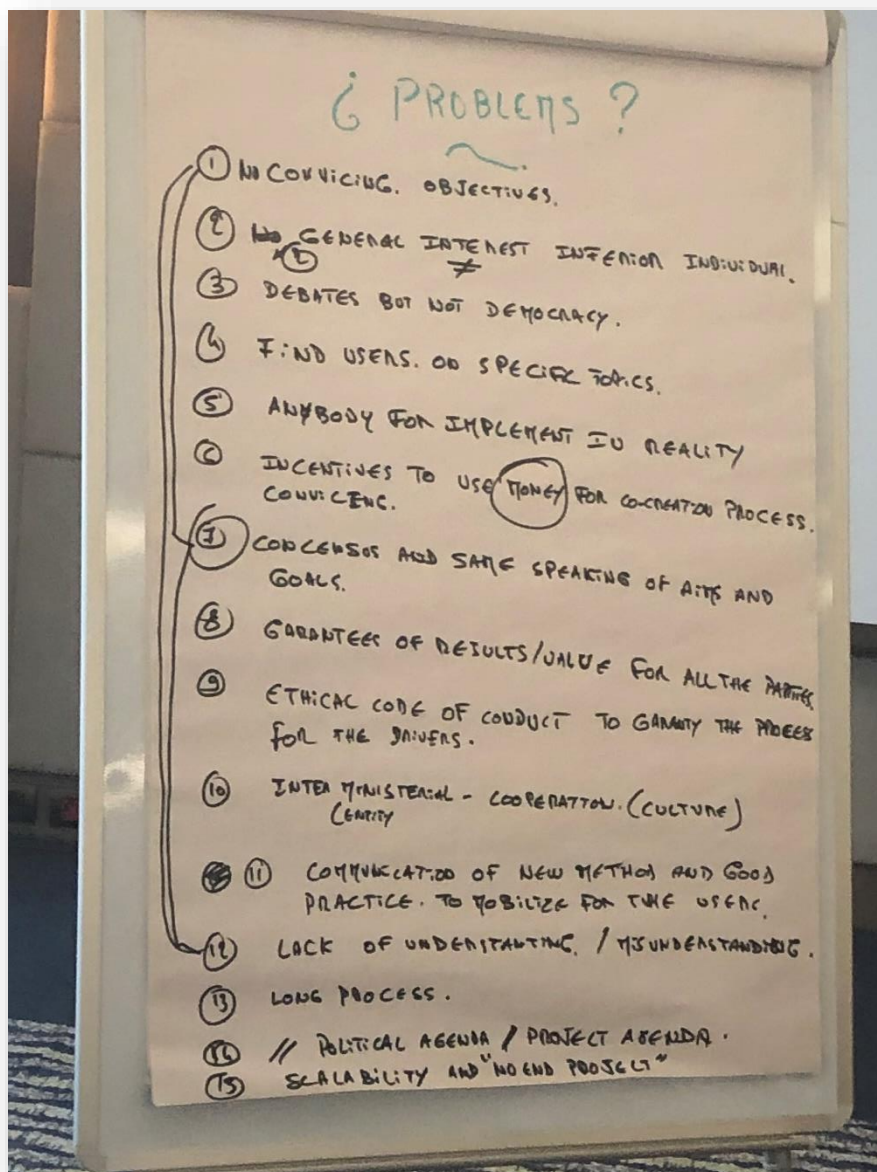 ¿ PROBLEMS ?
① NO CONVICING. OBJECTIVES.
② GENERAL INTEREST INFERIOR INDIVIDUAL.
≠
③ DEBATES BUT NOT DEMOCRACY.
④ FIND USERS. ON SPECIFIC TOPICS.
⑤ ANYBODY FOR IMPLEMENT IN REALITY
⑥ INCENTIVES TO USE MONEY FOR CO-CREATION PROCESS.
CONVICING.
⑦ CONCENSOS AND SAME SPEAKING OF AIMS AND
GOALS.
⑧ GARANTEES OF RESULTS/VALUE FOR ALL THE PARTIES
⑨ ETHICAL CODE OF CONDUCT TO GARANTY THE PROCESS
FOR THE DRIVERS.
⑩ INTER MINISTERIAL - COOPERATION. (CULTURE)
⑪ COMMUNICATION OF NEW METHOD AND GOOD
PRACTICE. TO MOBILIZE FOR USERS.
⑫ LACK OF UNDERSTANTING. / MISUNDERSTANDING.
⑬ LONG PROCESS.
⑭ // POLITICAL AGENDA / PROJECT AGENDA.
⑮ SCALABILITY AND "NO END PROJECT"